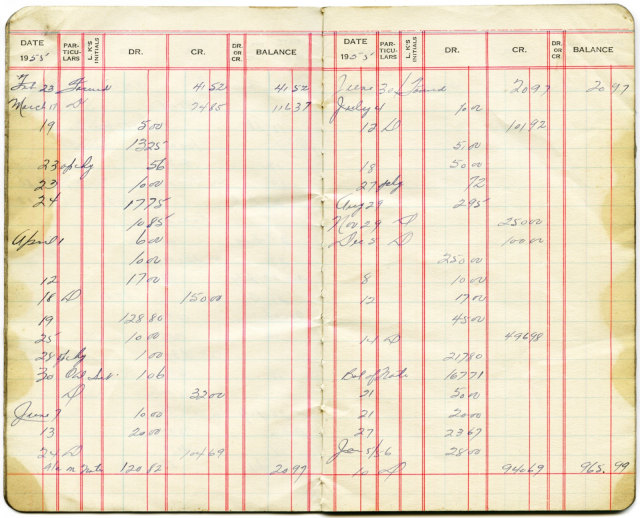 DATE PAR- TICU- LARS L. K'S INITIALS DR. CR. DR. OR CR. BALANCE
1955
Feb 23 Forward 4152 4152
March 17 D 7485 11637
19 500
1325
23 56
23 1000
24 1775
1085
April 1 600
1000
12 1700
18 D 15000
19 12880
25 1000
28 100
30 106
D 3200
June 7 1000
13 2000
24 D 10469
Note 12082 2097
DATE PAR- TICU- LARS L. K'S INITIALS DR. CR. DR. OR CR. BALANCE
1955
June 30 Forward 2097 2097
July 4 1000
12 D 10192
5100
18 5000
27 72
Aug 29 295
Nov 29 D 25000
Dec 5 D 10000
25000
8 1000
12 1700
4500
14 D 49698
21780
Bal of Note 16771
21 5000
21 2000
27 2367
Jan 5/56 2800
10 D 94069 965.99